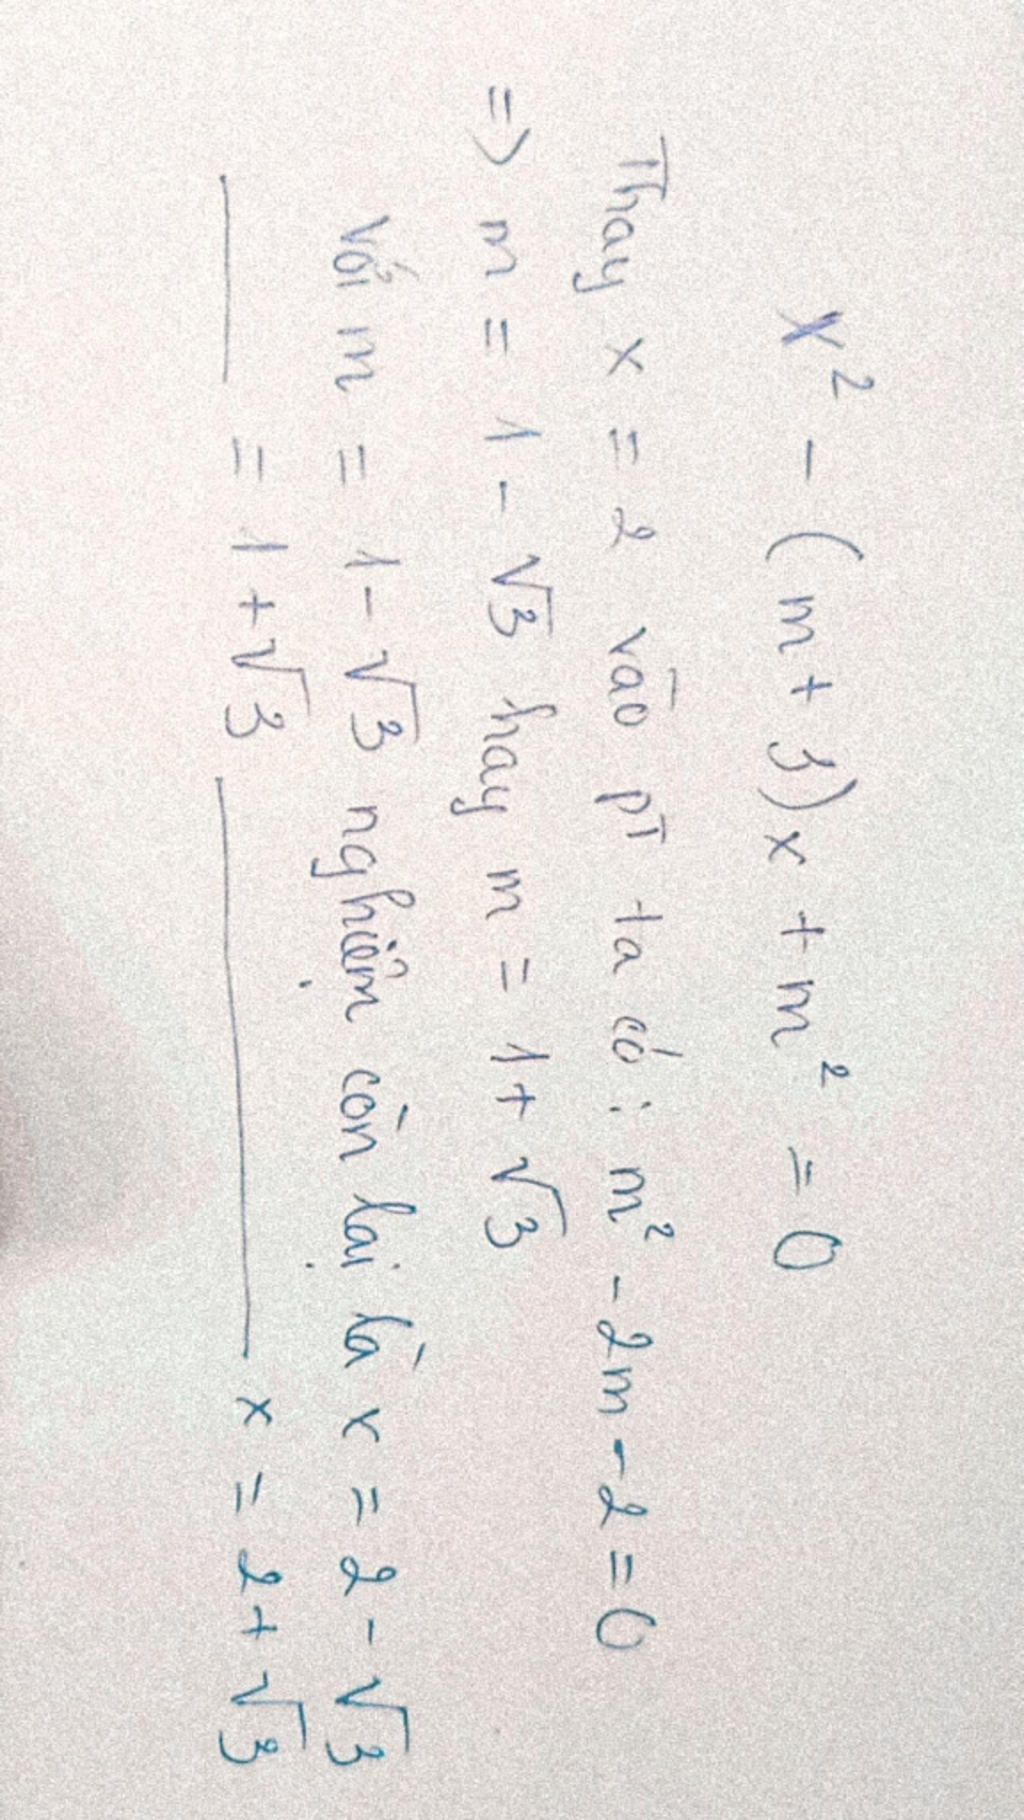 x² - (m + 3)x + m² = 0
Thay x = 2 vào PT ta có : m² - 2m - 2 = 0
=> m = 1 - √3 hay m = 1 + √3
Với m = 1 - √3 nghiệm còn lại là x = 2 - √3
——— = 1 + √3 ——————— x = 2 + √3